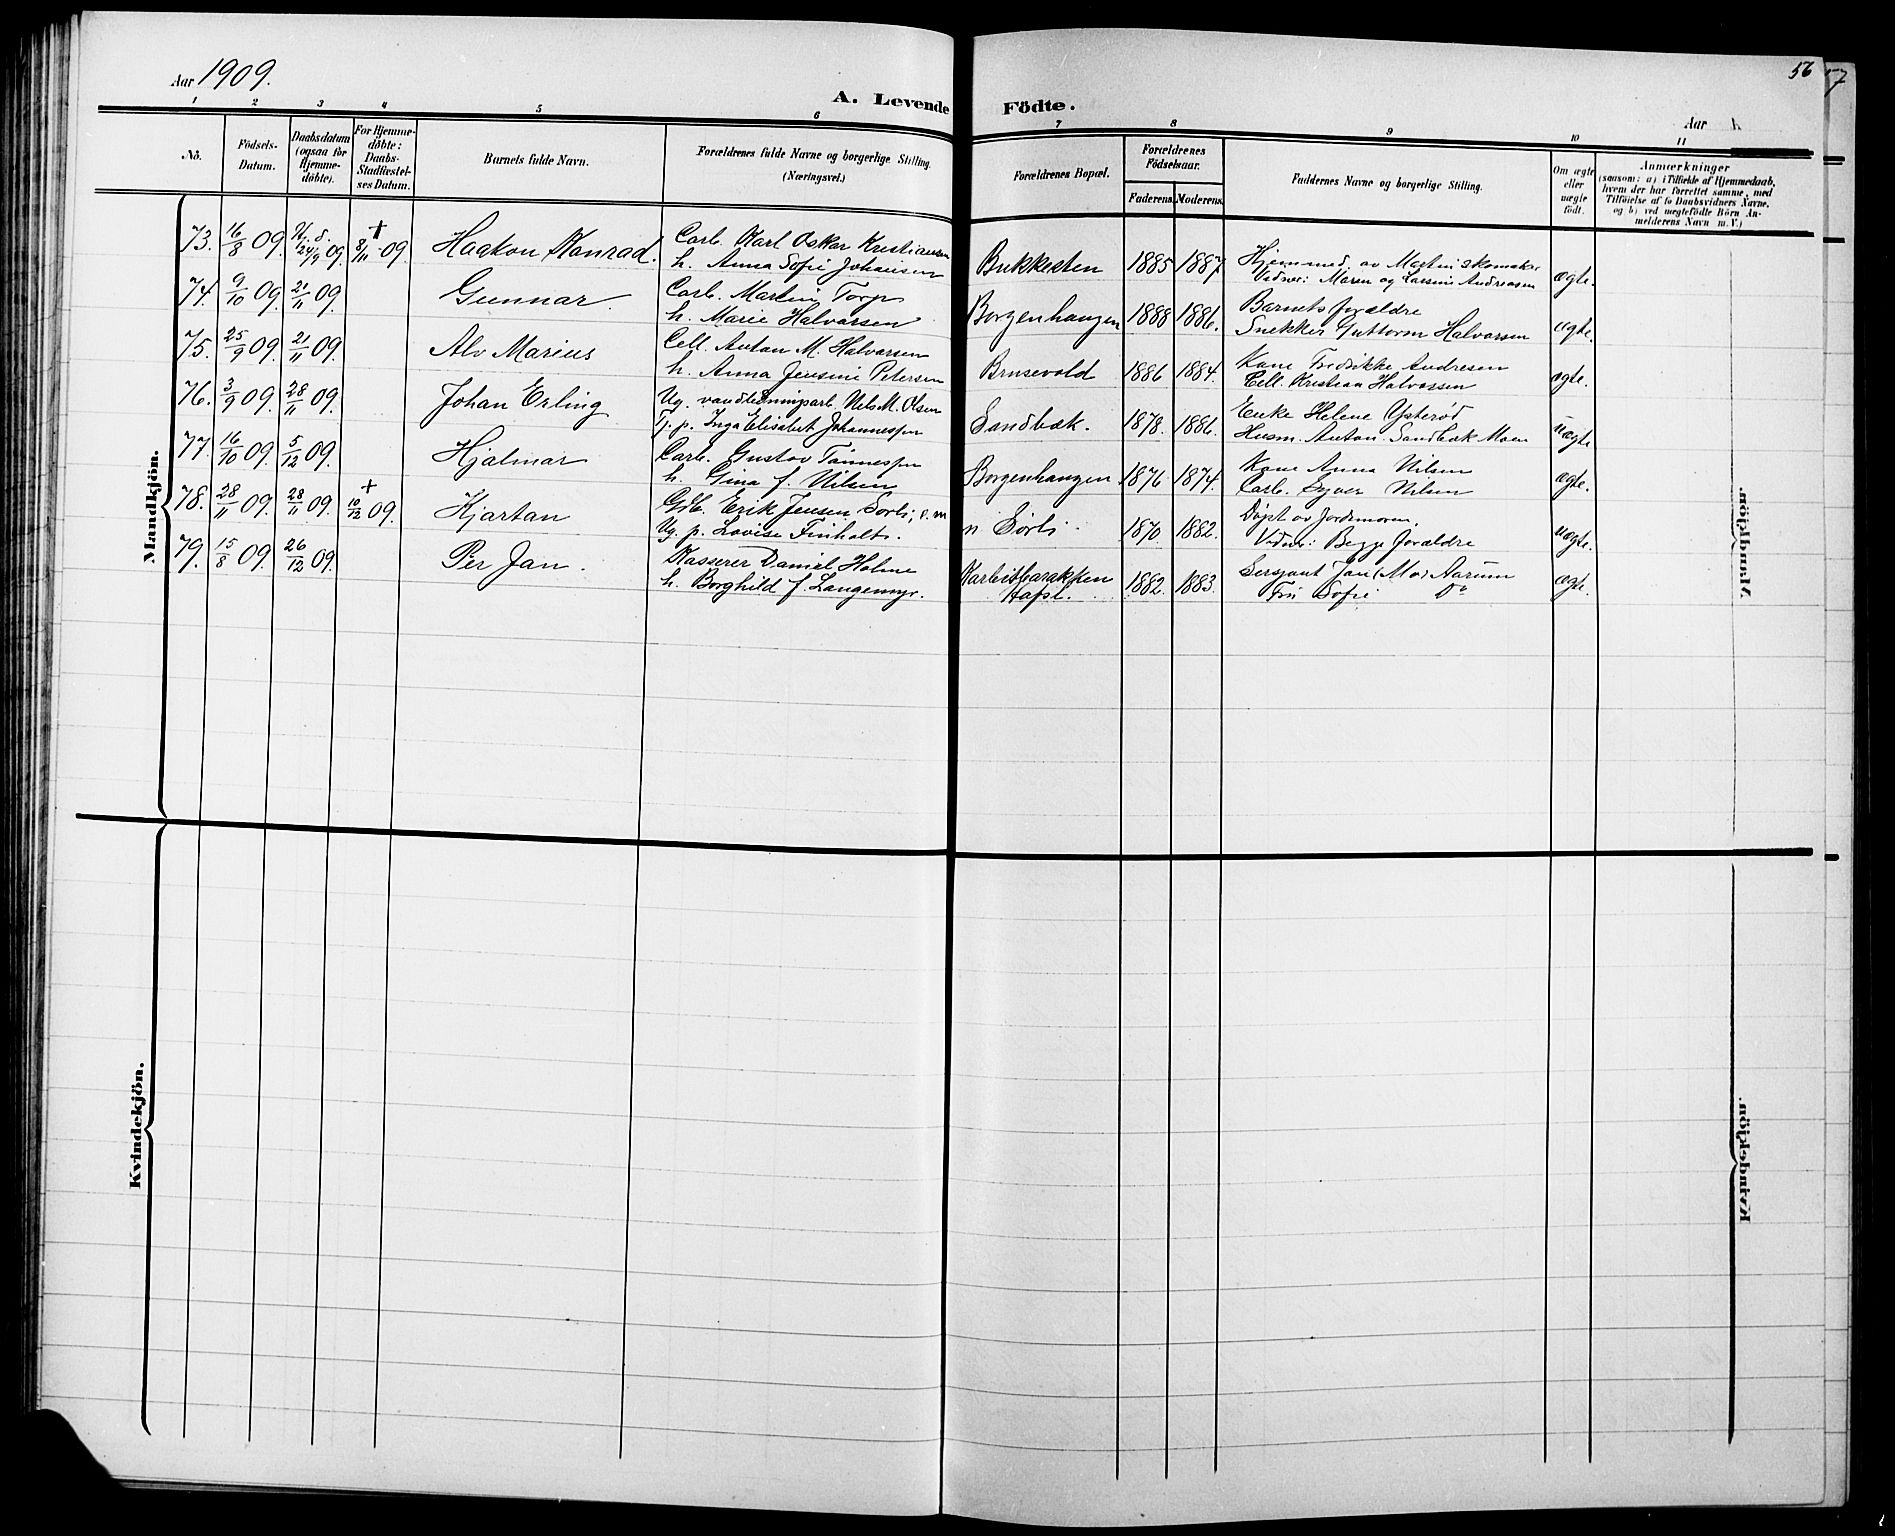 Aar 1909.
A. Levende Födte.
56
57
Aar
1 2 3 4 5 6 7 8 9 10 11
No.
Födsels-Datum.
Daabsdatum (ogsaa for Hjemme-döbte).
For Hjemme-döbte: Daabs-Stadfæstel-ses Datum.
Barnets fulde Navn.
Forældrenes fulde Navne og borgerlige Stilling.
(Næringsvei.)
Forældrenes Bopæl.
Forældrenes Födselsaar.
Faderens. Moderens.
Faddernes Navne og borgerlige Stilling.
Om ægte eller uægte födt.
Anmærkninger
(saasom: a) i Tilfælde af Hjemmedaab,
hvem der har forrettet samme, med
Tilföielse af to Daabsvidners Navne,
og b) ved uægtefödte Börn An-
melderens Navn m. V.)
Mandkjön.
73. 16/8 09. H. d. 24/9 09. + 8/11 09. Haakon Konrad. Carb. Karl Oskar Kristiansen Bukkesten 1885 1887. Hjemmed. av Martin skomaker ægte.
h. Anna Sofie Johansen Vidner: Maren og Larsine Andreasen
74. 9/10 09. 21/11 09. Gunnar Carb. Martin Torp Borgenhaugen 1888 1886. Barnets forældre ægte.
h. Marie Halvorsen Snekker Guttorm Halvorsen
75. 25/9 09. 21/11 09. Alv Marius Cell. Anton M. Halvorsen Brusevold 1886 1884. Kone Fredrikke Andresen ægte.
h. Anna Jensine Petersen Cell. Kristian Halvorsen
76. 3/9 09. 28/11 09. Johan Erling Ug. vandledningsarb. Nels M. Olsen Sandbæk. 1878. 1886. Enke Helene Ysterød uægte
Tj. p. Inga Elisabet Johannessen Husm. Anton Sandbæk Moen
77. 16/10 09. 5/12 09. Hjalmar Carb. Gustav Tønnessen Borgenhaugen 1876 1874. Kone Anna Nilsen ægte.
h. Gina f. Nilsen Carb. Syver Nilsen
78. 28/11 09. 28/11 09. + 10/12 09. Kjartan Gdb. Erik Jensen Sørli, e. m n Sørli 1870. 1882. Døpt av Jordemoren. uægte.
Ug. p. Lovise Finholt. Vidner: Begge forældre
79. 15/8 09. 26/12 09. Per Jan. Kasserer Daniel Holme Karbitbarakken 1882. 1883. Sersjant Jan (Mo) Aarum ægte.
h. Borghild f. Langemyr. Hafsl. Fru Sofie Do
Kvindekjön.
Mandkjön.
Kvindekjön.